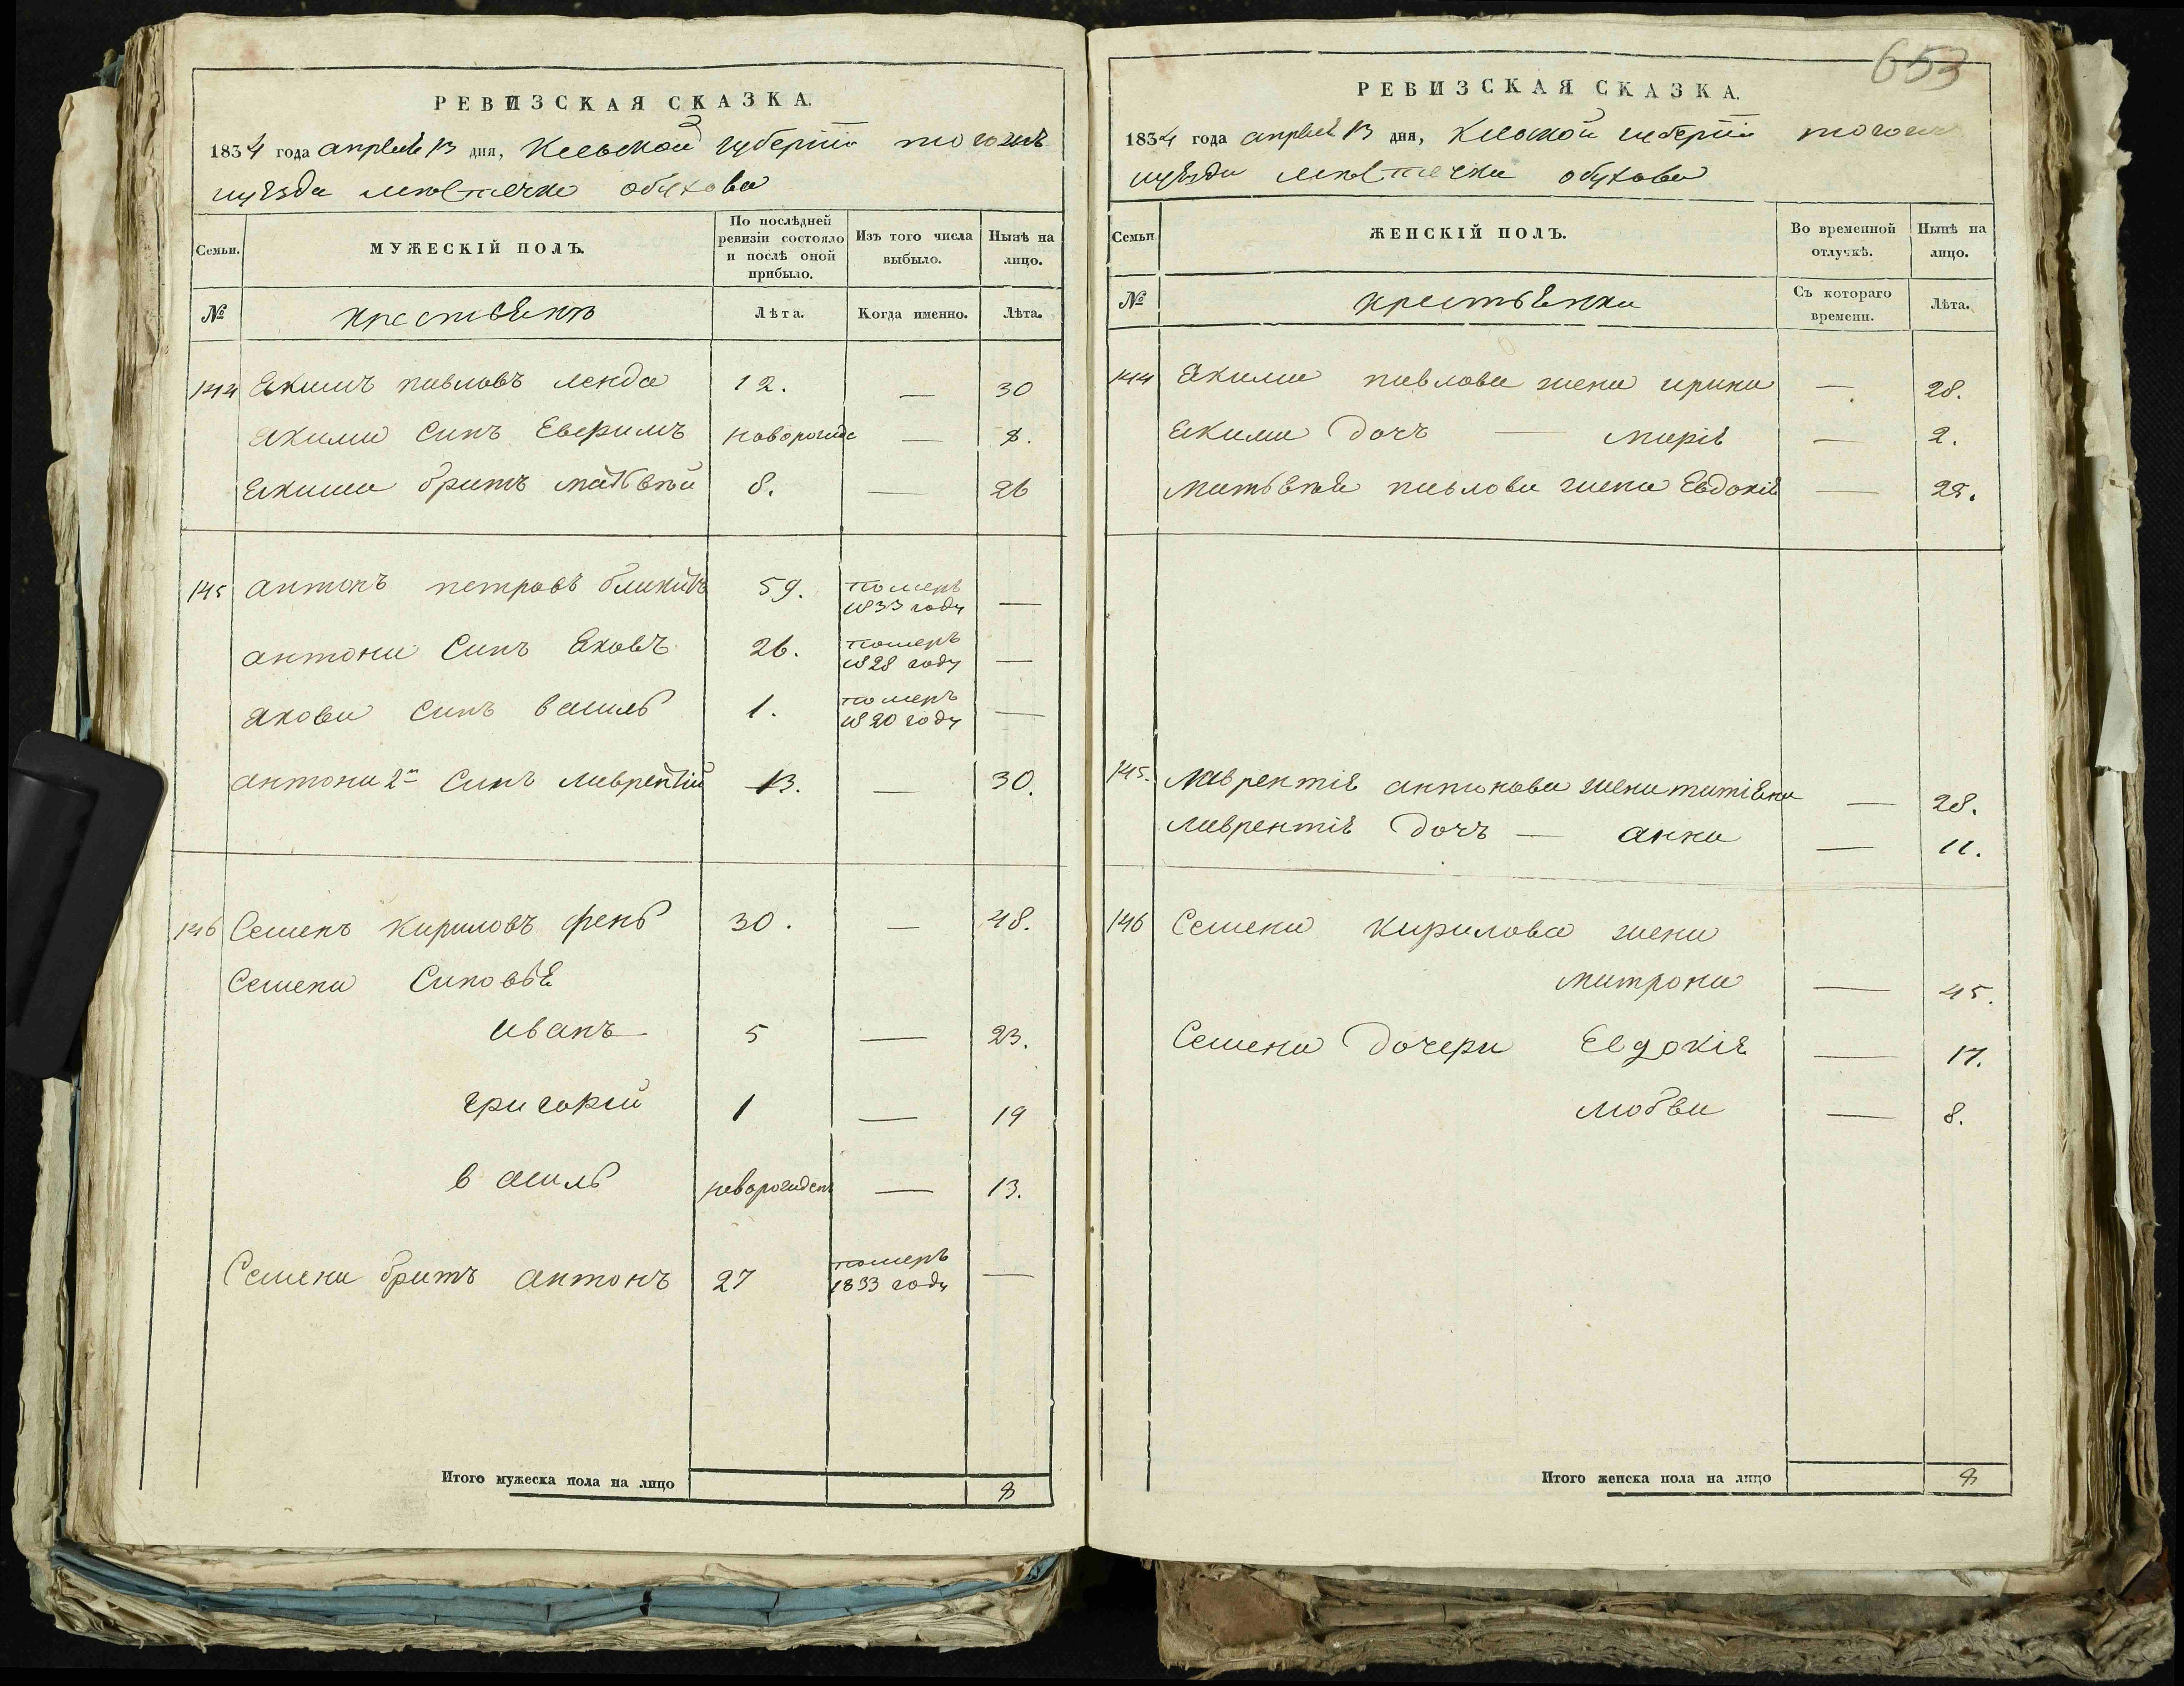 РЕВИЗСКАЯ СКАЗКА.
1834 года апреля 13 дня, Киевской губернии тогожъ
уезда местечка обухова
Семьи.
МУЖЕСКІЙ ПОЛЪ.
По послѣдней ревизіи состояло и послѣ оной прибыло.
Изъ того числа выбыло.
Нынѣ на лицо.
№
крестьянъ
Лѣта.
Когда именно.
Лѣта.
144 Якимъ павловъ ленда 12. — 30
Якима синъ Евфримъ новорожде — 8.
Якима братъ матвѣй 8. — 26
145 антонъ петровъ 59. померъ 1833 году —
антона синъ Яковъ 26. померъ 1828 году —
Якова синъ василь 1. померъ 1820 году —
антона 2й синъ лаврентій 13. — 30.
146 Семенъ кириловъ фень 30. — 48.
Семена синовья
иванъ 5 — 23.
григорій 1 — 19
василь новорожденъ — 13.
Семена братъ антонъ 27 померъ 1833 году —
Итого мужеска пола на лицо 8
653
РЕВИЗСКАЯ СКАЗКА.
1834 года апреля 13 дня, Киевской губернии тогожъ
уезда местечка обухова
Семьи
ЖЕНСКІЙ ПОЛЪ.
Во временной отлучкѣ.
Нынѣ на лицо.
№
крестьянки
Съ котораго времени.
Лѣта.
144 Якима павлова жена ирина — 28.
Якима дочъ — марія — 2.
матвѣя павлова жена Евдокія — 25.
145. лаврентія антонова жена татіяна — 28.
лаврентія дочъ — анна — 11.
146 Семена кирилова жена
матрона — 45.
Семена дочери Евдокія — 17.
любви — 8.
Итого женска пола на лицо 8